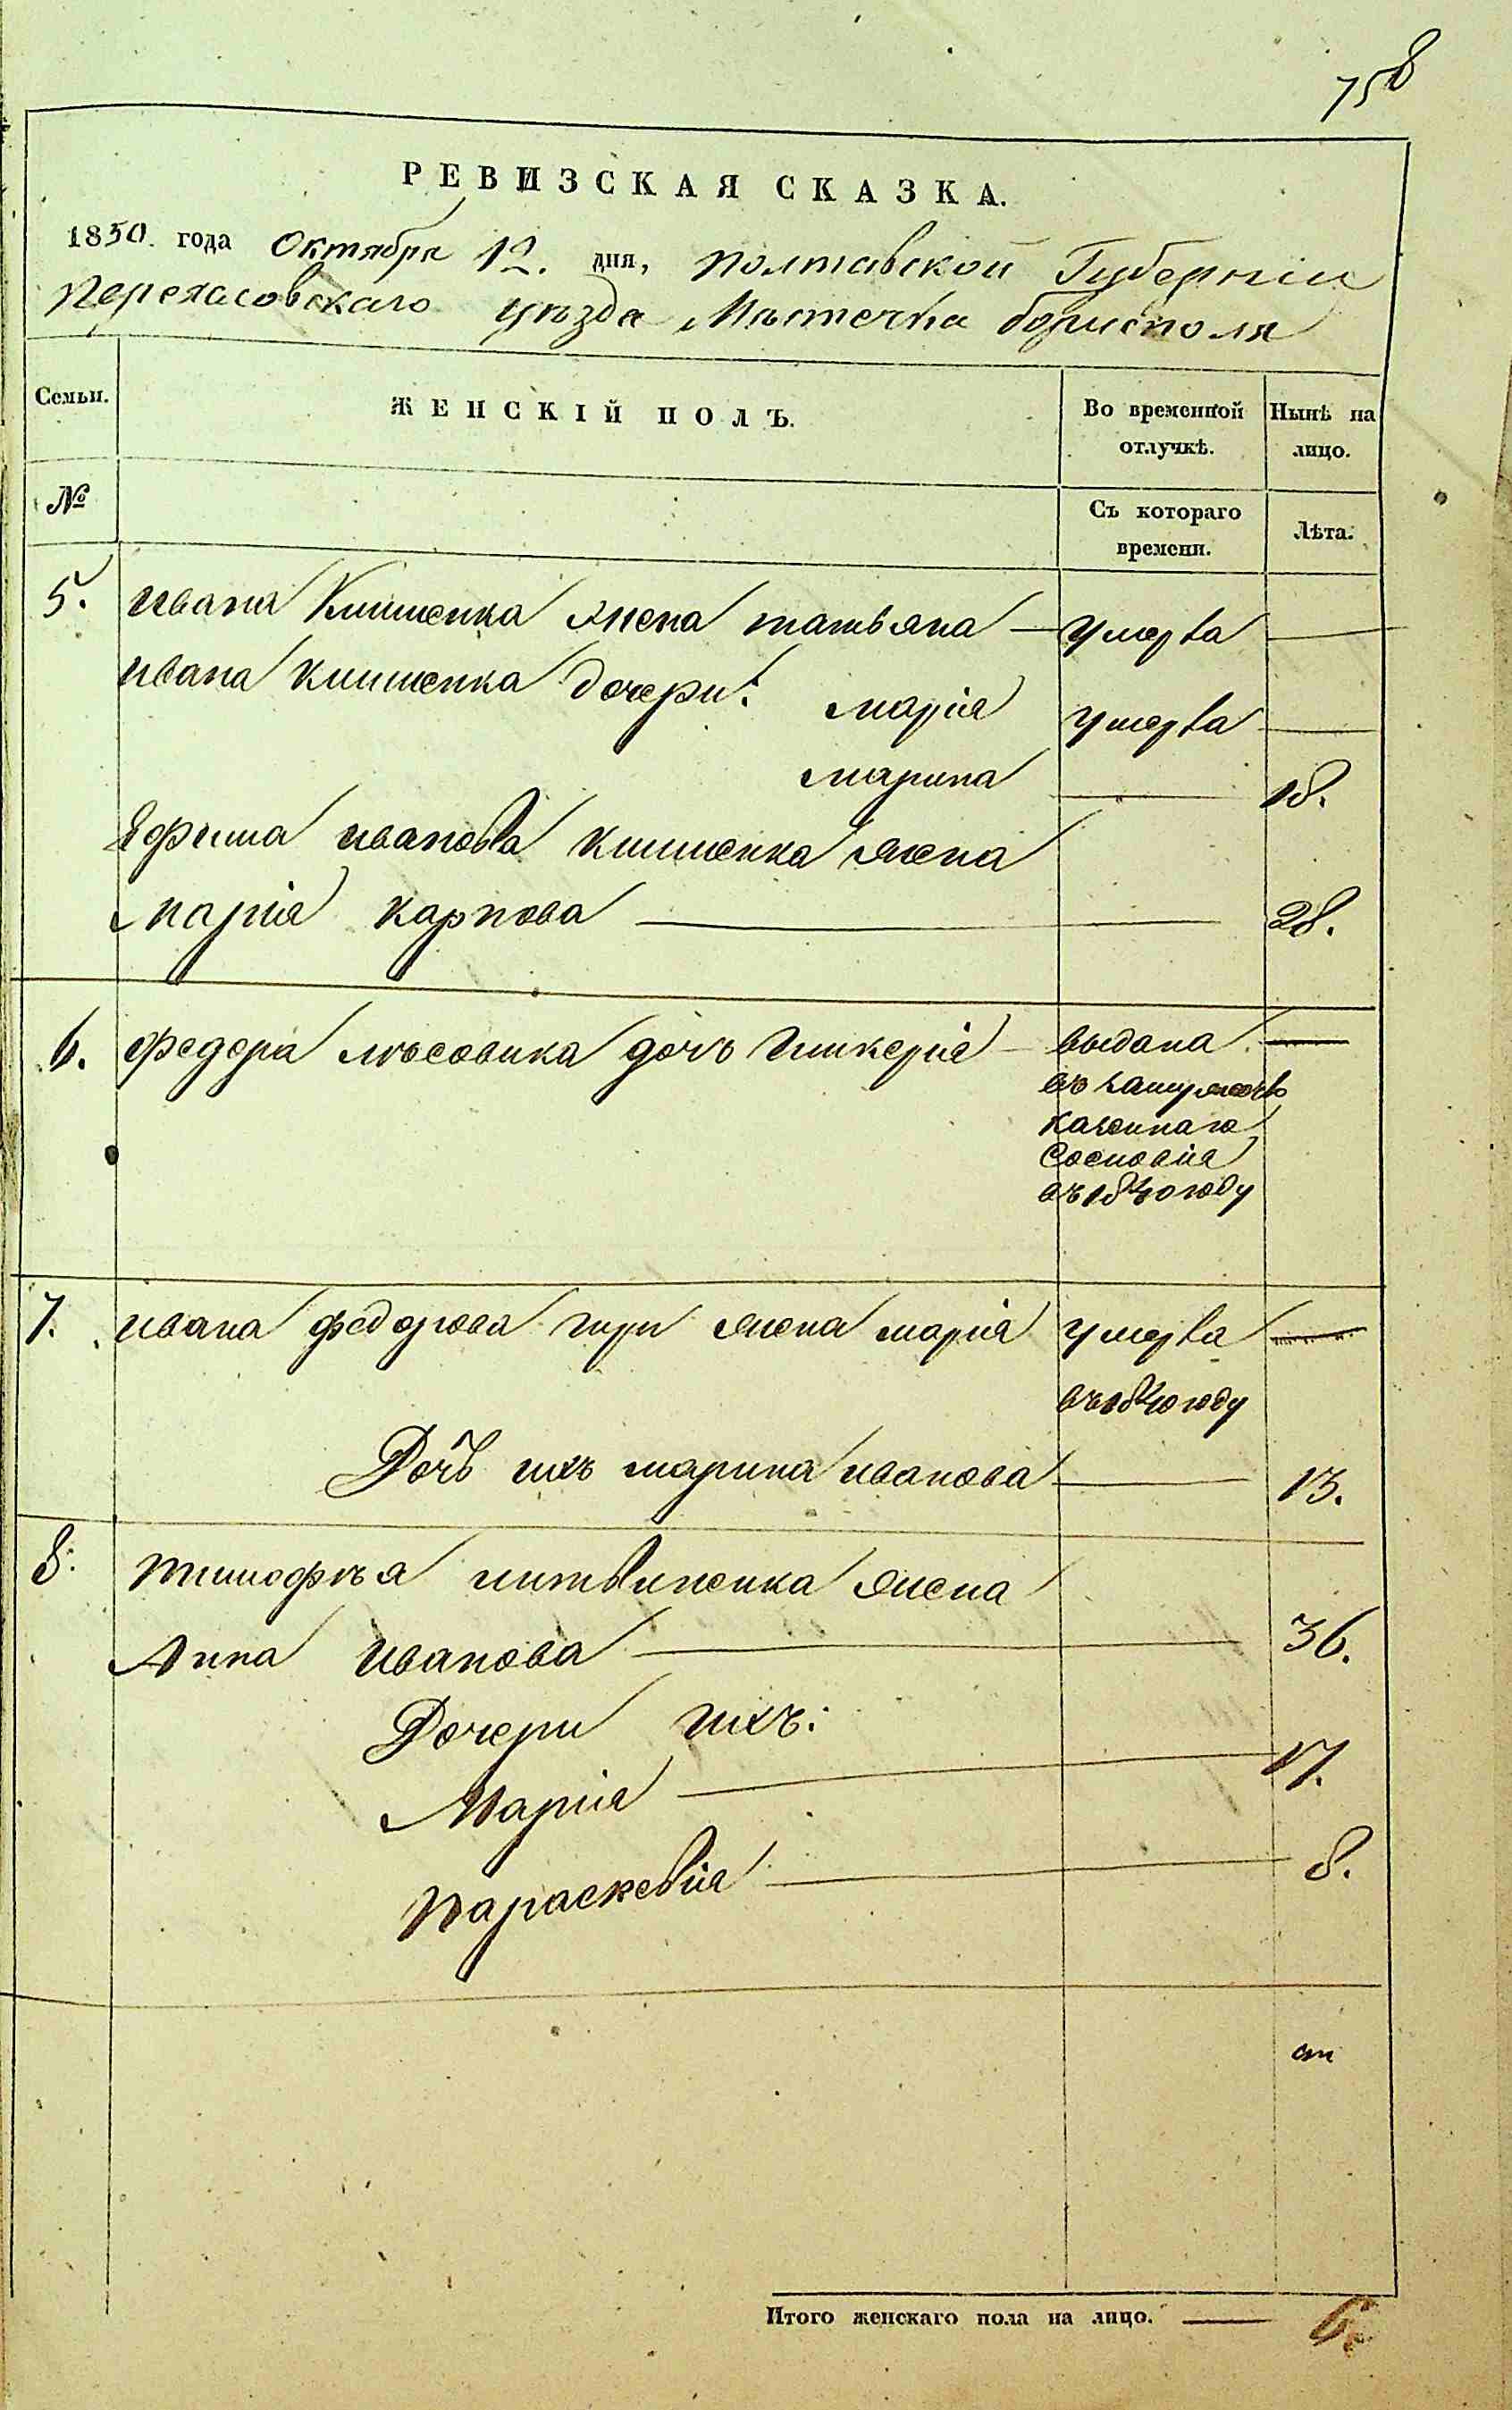 758
РЕВИЗСКАЯ СКАЗКА.
1850. года Октября 12. дня, Полтавской Губерніи
Переяасовскаго уѣзда Мѣстечка борисполя
Семьи. ЖЕНСКІЙ ПОЛЪ. Во временной отлучкѣ. Нынѣ на лицо.
№ Съ котораго времени. Лѣта.
5. Ивана Климменка жена татьяна — умерва —
Ивана климменка дочери: марія умерва —
марина — 18.
Яфима иванова климменка жена
марія карпова — — 28.
6. Федора лѣсовика дочь гликерія — выдана —
въ замужство
казеннаго
Сословія
въ 1840 году
7. ивана федорова гири жена марія умерва —
въ 1840 году
Дочь ихъ марина иванова — 13.
8. тимофѣя литвиненка жена
Анна иванова — 36.
Дочери ихъ:
Марія — 17.
параскевія — 8.
Итого женскаго пола на лицо. — 6.